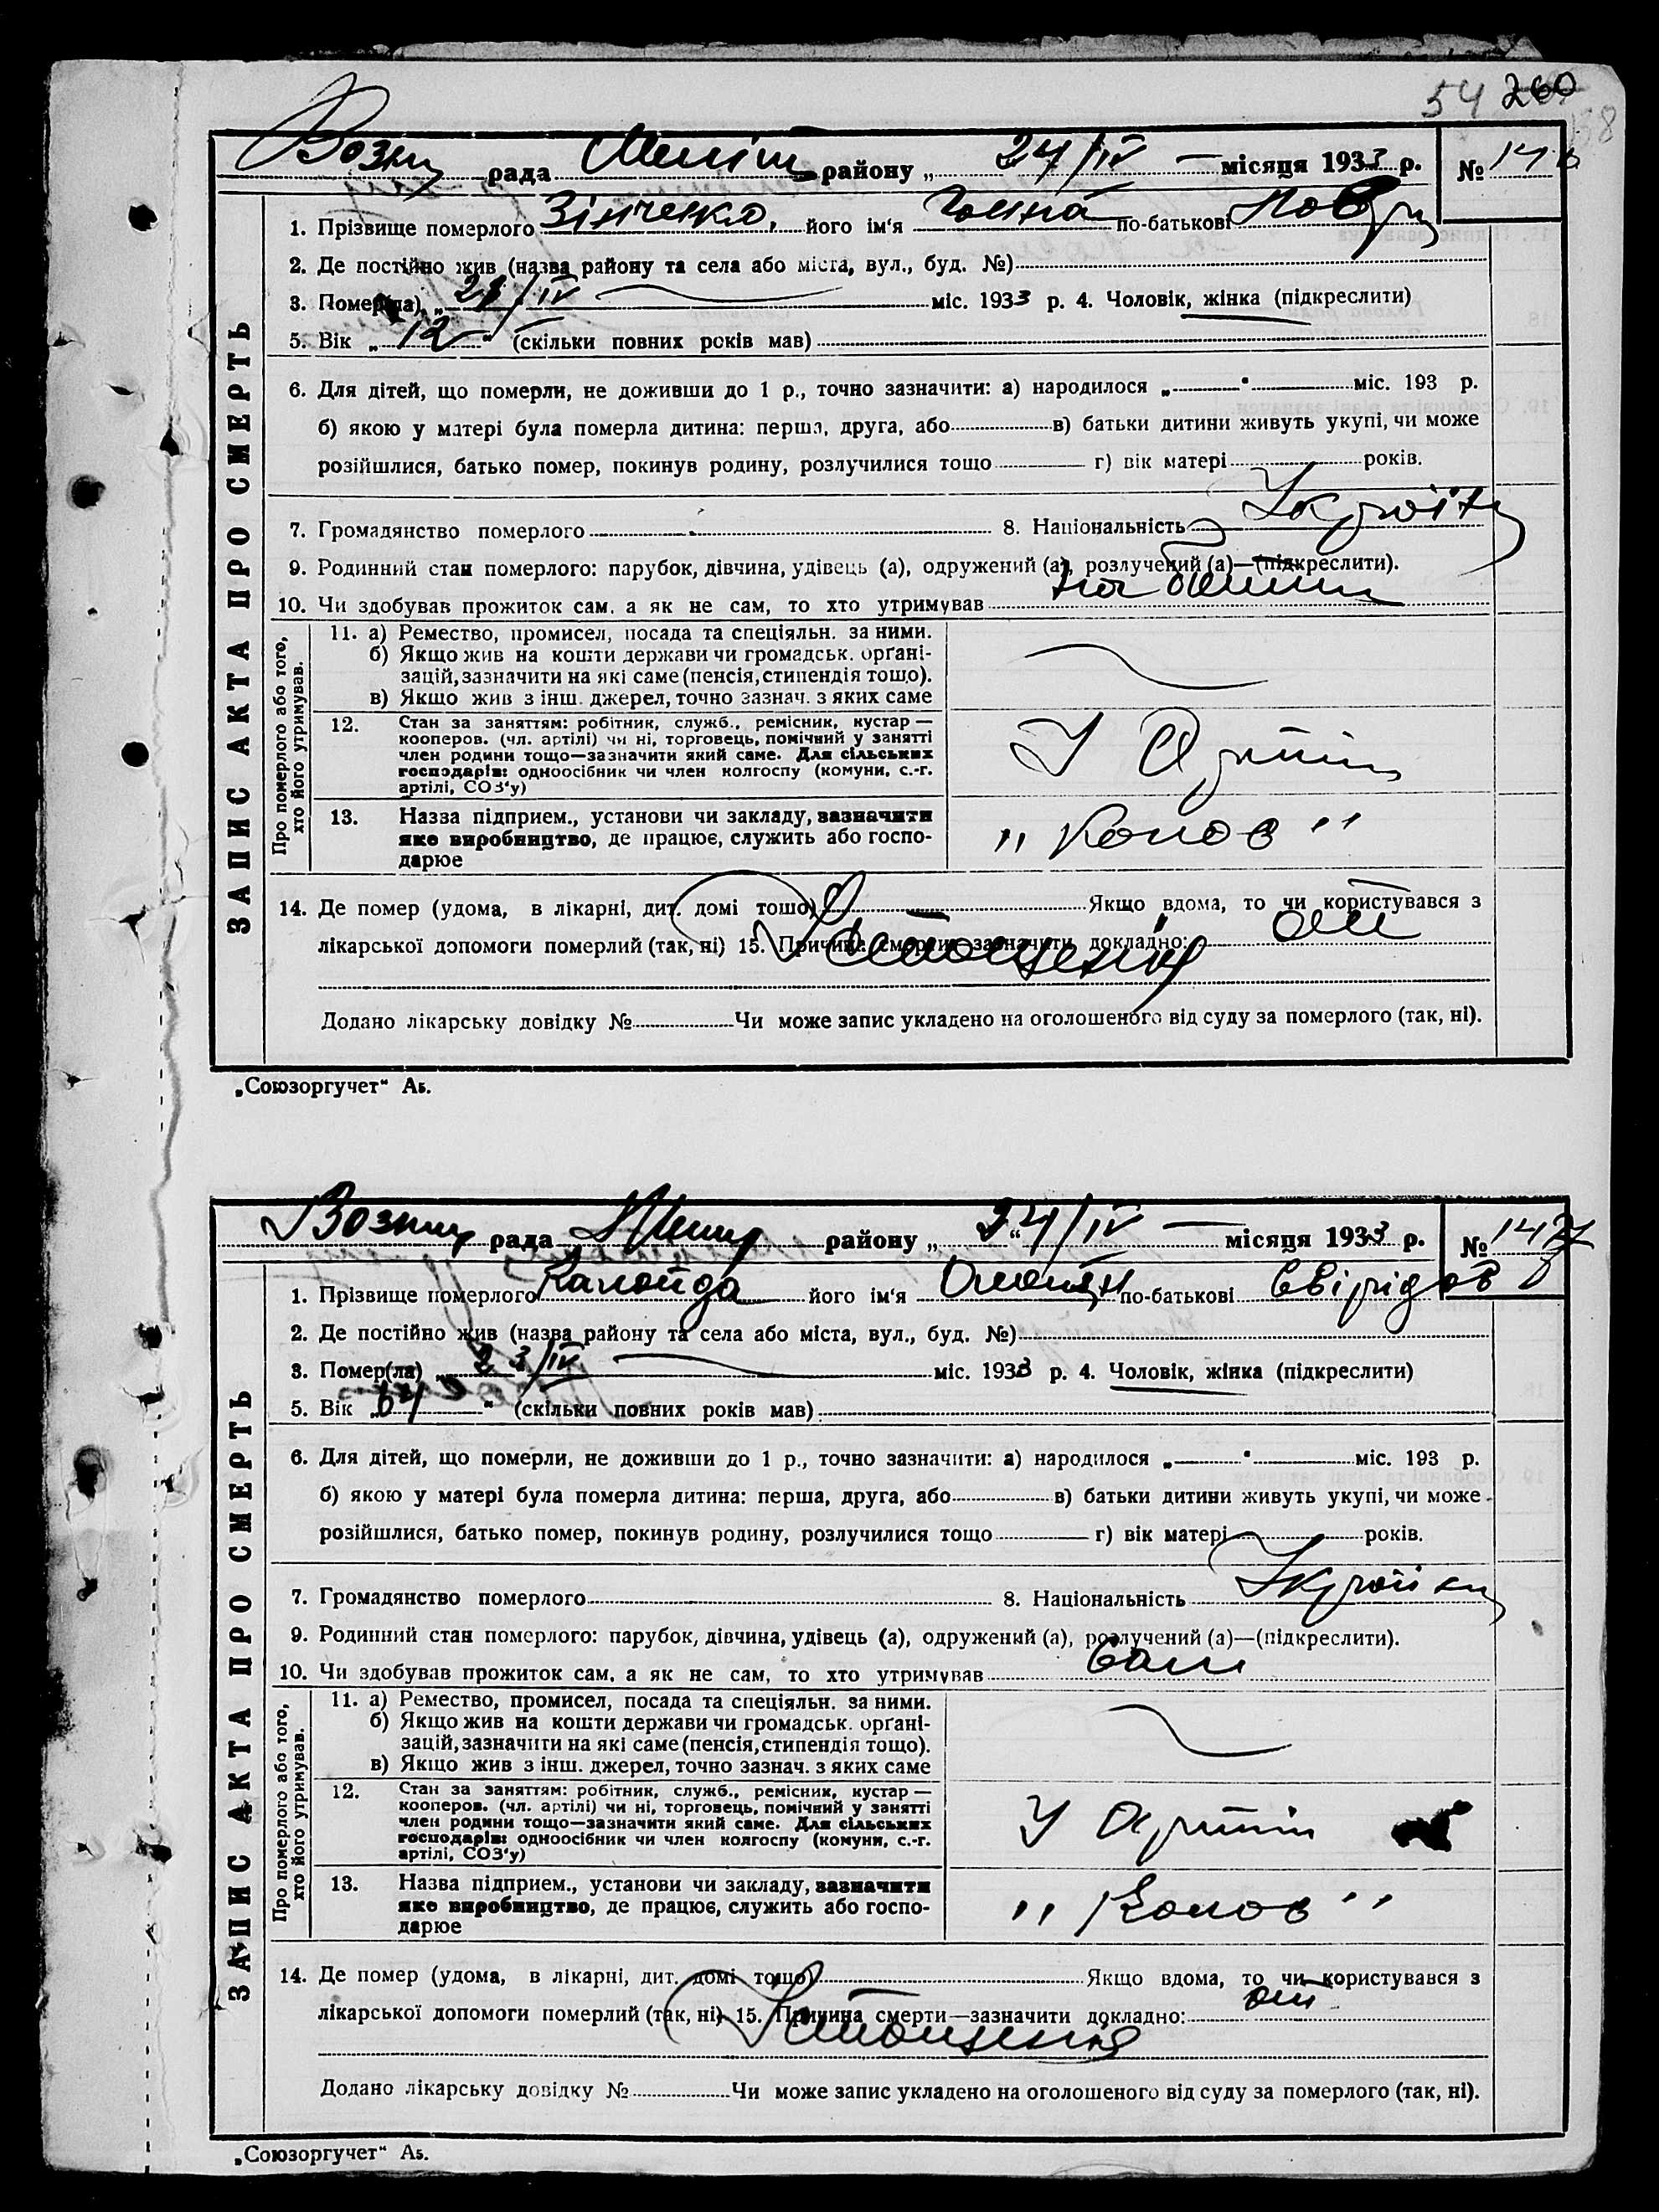 54 260
рада району „ 24/IV місяця 1933 р. № 14
1. Прізвище померлого Зінченко, його ім'я по-батькові
2. Де постійно жив (назва району та села або міста, вул., буд. №)
3. Помер(ла) „ /IV міс. 1933 р. 4. Чоловік, жінка (підкреслити)
5. Вік „ 12 " (скільки повних років мав)
6. Для дітей, що померли, не доживши до 1 р., точно зазначити: а) народилося „ " міс. 193 р.
б) якою у матері була померла дитина: перша, друга, або в) батьки дитини живуть укупі, чи може
розійшлися, батько помер, покинув родину, розлучилися тощо г) вік матері років.
7. Громадянство померлого 8. Національність
9. Родинний стан померлого: парубок, дівчина, удівець (а), одружений (а), розлучений (а)—(підкреслити).
10. Чи здобував прожиток сам, а як не сам, то хто утримував на
ЗАПИС АКТА ПРО СМЕРТЬ
Про померлого або того, хто його утримував.
11. а) Ремество, промисел, посада та спеціяльн. за ними.
б) Якщо жив на кошти держави чи громадськ. орґані-
зацій, зазначити на які саме (пенсія, стипендія тощо).
в) Якщо жив з інш. джерел, точно зазнач. з яких саме
12. Стан за заняттям: робітник, служб., ремісник, кустар —
кооперов. (чл. артілі) чи ні, торговець, помічний у занятті
член родини тощо—зазначити який саме. Для сільських
господарів: одноосібник чи член колгоспу (комуни, с.-г.
артілі, СОЗ'у)
У
13. Назва підприєм., установи чи закладу, зазначити
яке виробництво, де працює, служить або госпо-
дарює
14. Де помер (удома, в лікарні, дит. домі тощо) Якщо вдома, то чи користувався з
лікарської допомоги померлий (так, ні) 15. Причина смерти—зазначити докладно:
Істощенія
Додано лікарську довідку № Чи може запис укладено на оголошеного від суду за померлого (так, ні).
„Союзоргучет" А5.
рада району „ " 24/IV місяця 1933 р. № 147
1. Прізвище померлого його ім'я по-батькові Свірідов
2. Де постійно жив (назва району та села або міста, вул., буд. №)
3. Помер(ла) „ 23/IV міс. 1933 р. 4. Чоловік, жінка (підкреслити)
5. Вік „ 64 " (скільки повних років мав)
6. Для дітей, що померли, не доживши до 1 р., точно зазначити: а) народилося „ " міс. 193 р.
б) якою у матері була померла дитина: перша, друга, або в) батьки дитини живуть укупі, чи може
розійшлися, батько помер, покинув родину, розлучилися тощо г) вік матері років.
7. Громадянство померлого 8. Національність
9. Родинний стан померлого: парубок, дівчина, удівець (а), одружений (а), розлучений (а)—(підкреслити).
10. Чи здобував прожиток сам, а як не сам, то хто утримував Сам
ЗАПИС АКТА ПРО СМЕРТЬ
Про померлого або того, хто його утримував.
11. а) Ремество, промисел, посада та спеціяльн. за ними.
б) Якщо жив на кошти держави чи громадськ. орґані-
зацій, зазначити на які саме (пенсія, стипендія тощо).
в) Якщо жив з інш. джерел, точно зазнач. з яких саме
12. Стан за заняттям: робітник, служб., ремісник, кустар —
кооперов. (чл. артілі) чи ні, торговець, помічний у занятті
член родини тощо—зазначити який саме. Для сільських
господарів: одноосібник чи член колгоспу (комуни, с.-г.
артілі, СОЗ'у)
У
13. Назва підприєм., установи чи закладу, зазначити
яке виробництво, де працює, служить або госпо-
дарює
14. Де помер (удома, в лікарні, дит. домі тощо) Якщо вдома, то чи користувався з
лікарської допомоги померлий (так, ні) 15. Причина смерти—зазначити докладно:
Істощенія
Додано лікарську довідку № Чи може запис укладено на оголошеного від суду за померлого (так, ні).
„Союзоргучет" А5.